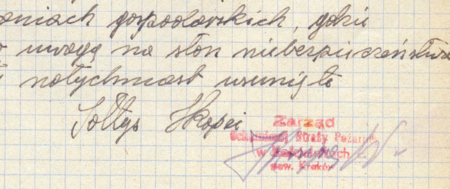 gospodarskich, gdzie
uwagę na stan niebezpieczeństwa
natychmiast usunięto
Sołtys
Zarząd
Straży Pożarn
w
pow. Kraków